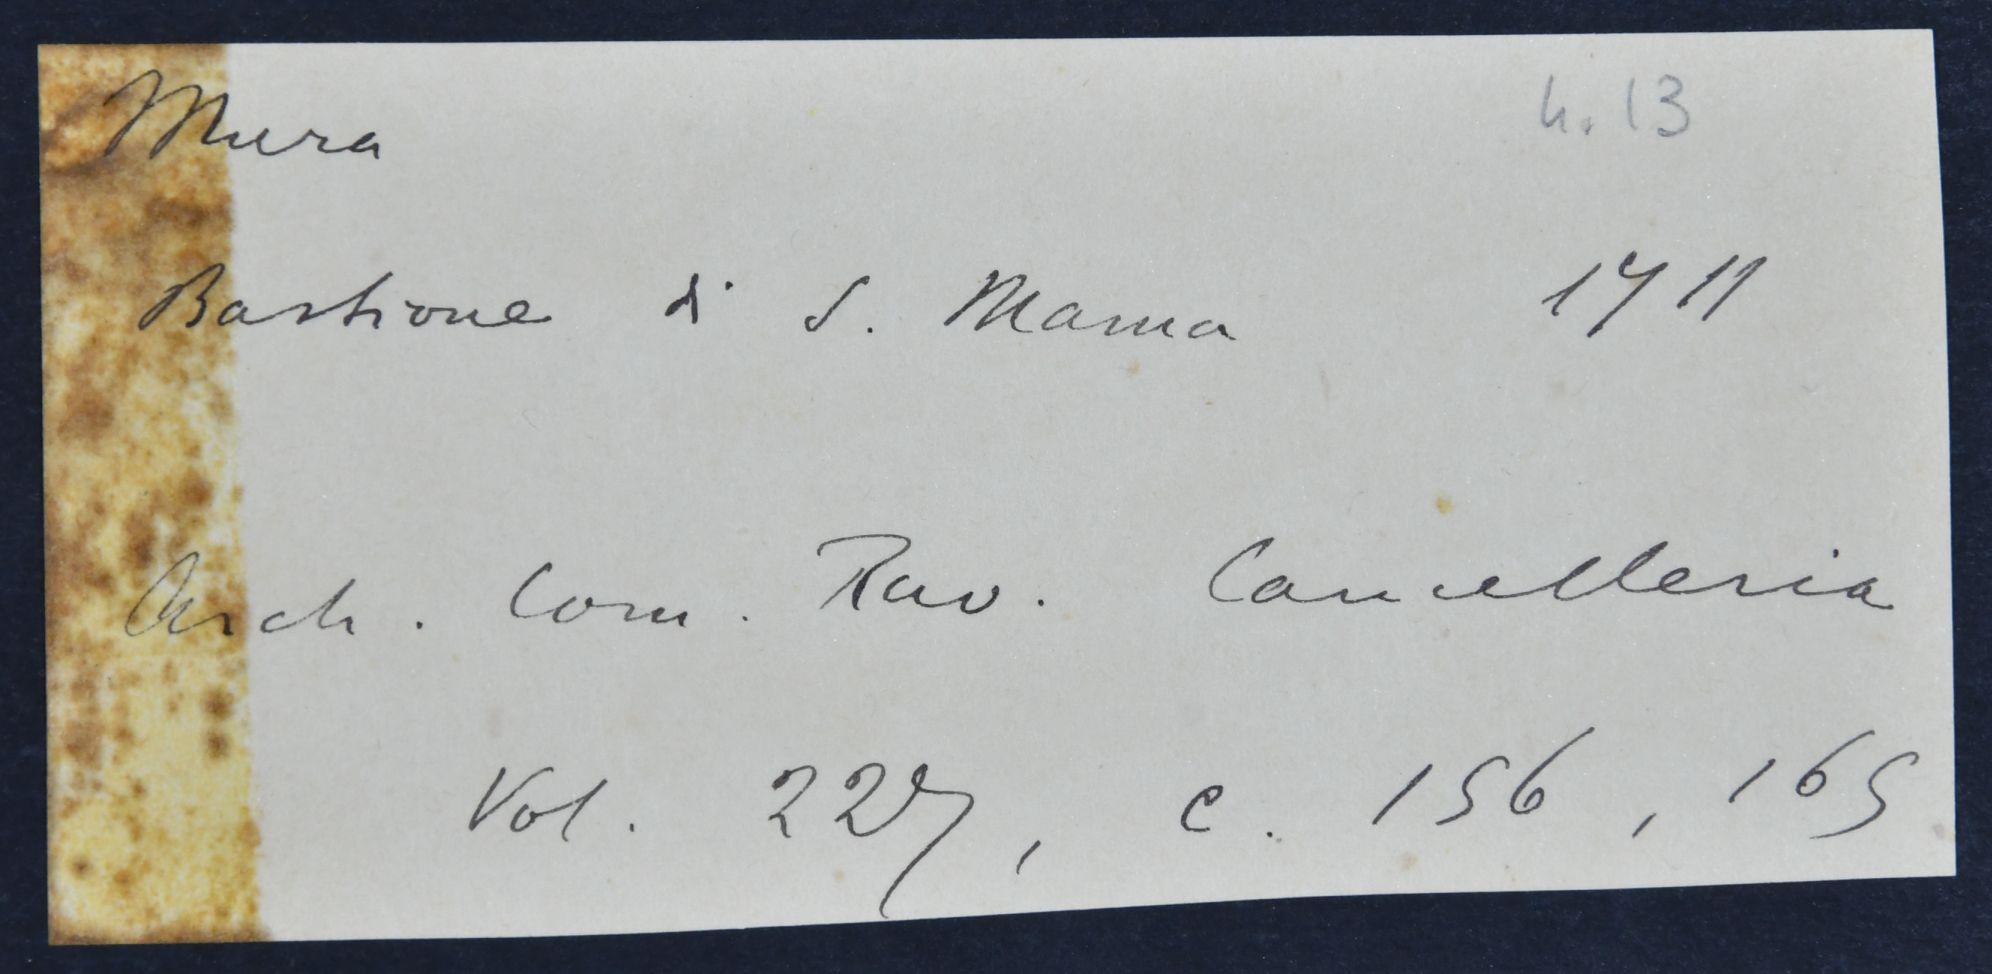 Mura n. 13
Bastione di S. Mama 1711
Arch. Com. Rav. Cancelleria
Vol. 227, c. 156, 165